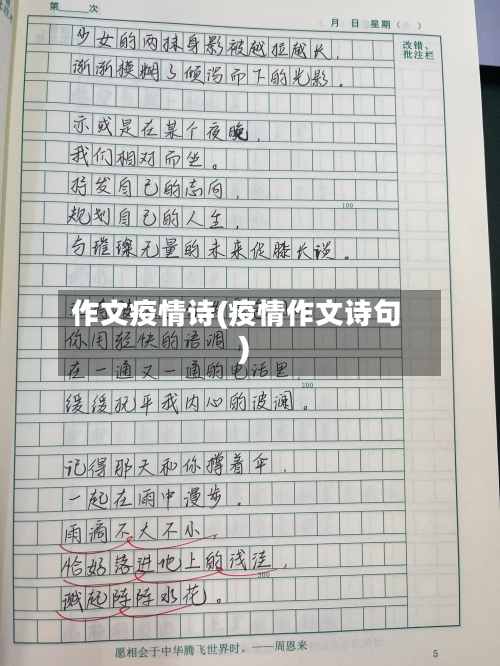 第 次
月 日 星期( )
改错、
批注栏
少女的两抹身影被越拉越长,
渐渐模糊了倾泻而下的光影。
亦或是在某个夜晚,
我们相对而坐。
抒发自己的志向,
规划自己的人生,
与璀璨无量的未来促膝长谈。
100
作文疫情诗(疫情作文诗句
)
你用轻快的语调
在一通又一通的电话里,
200
缓缓抚平我内心的波澜。
记得那天和你撑着伞,
一起在雨中漫步。
雨滴不大不小,
恰好落进地上的浅洼,
300
溅起阵阵水花。
愿相会于中华腾飞世界时。——周恩来
5